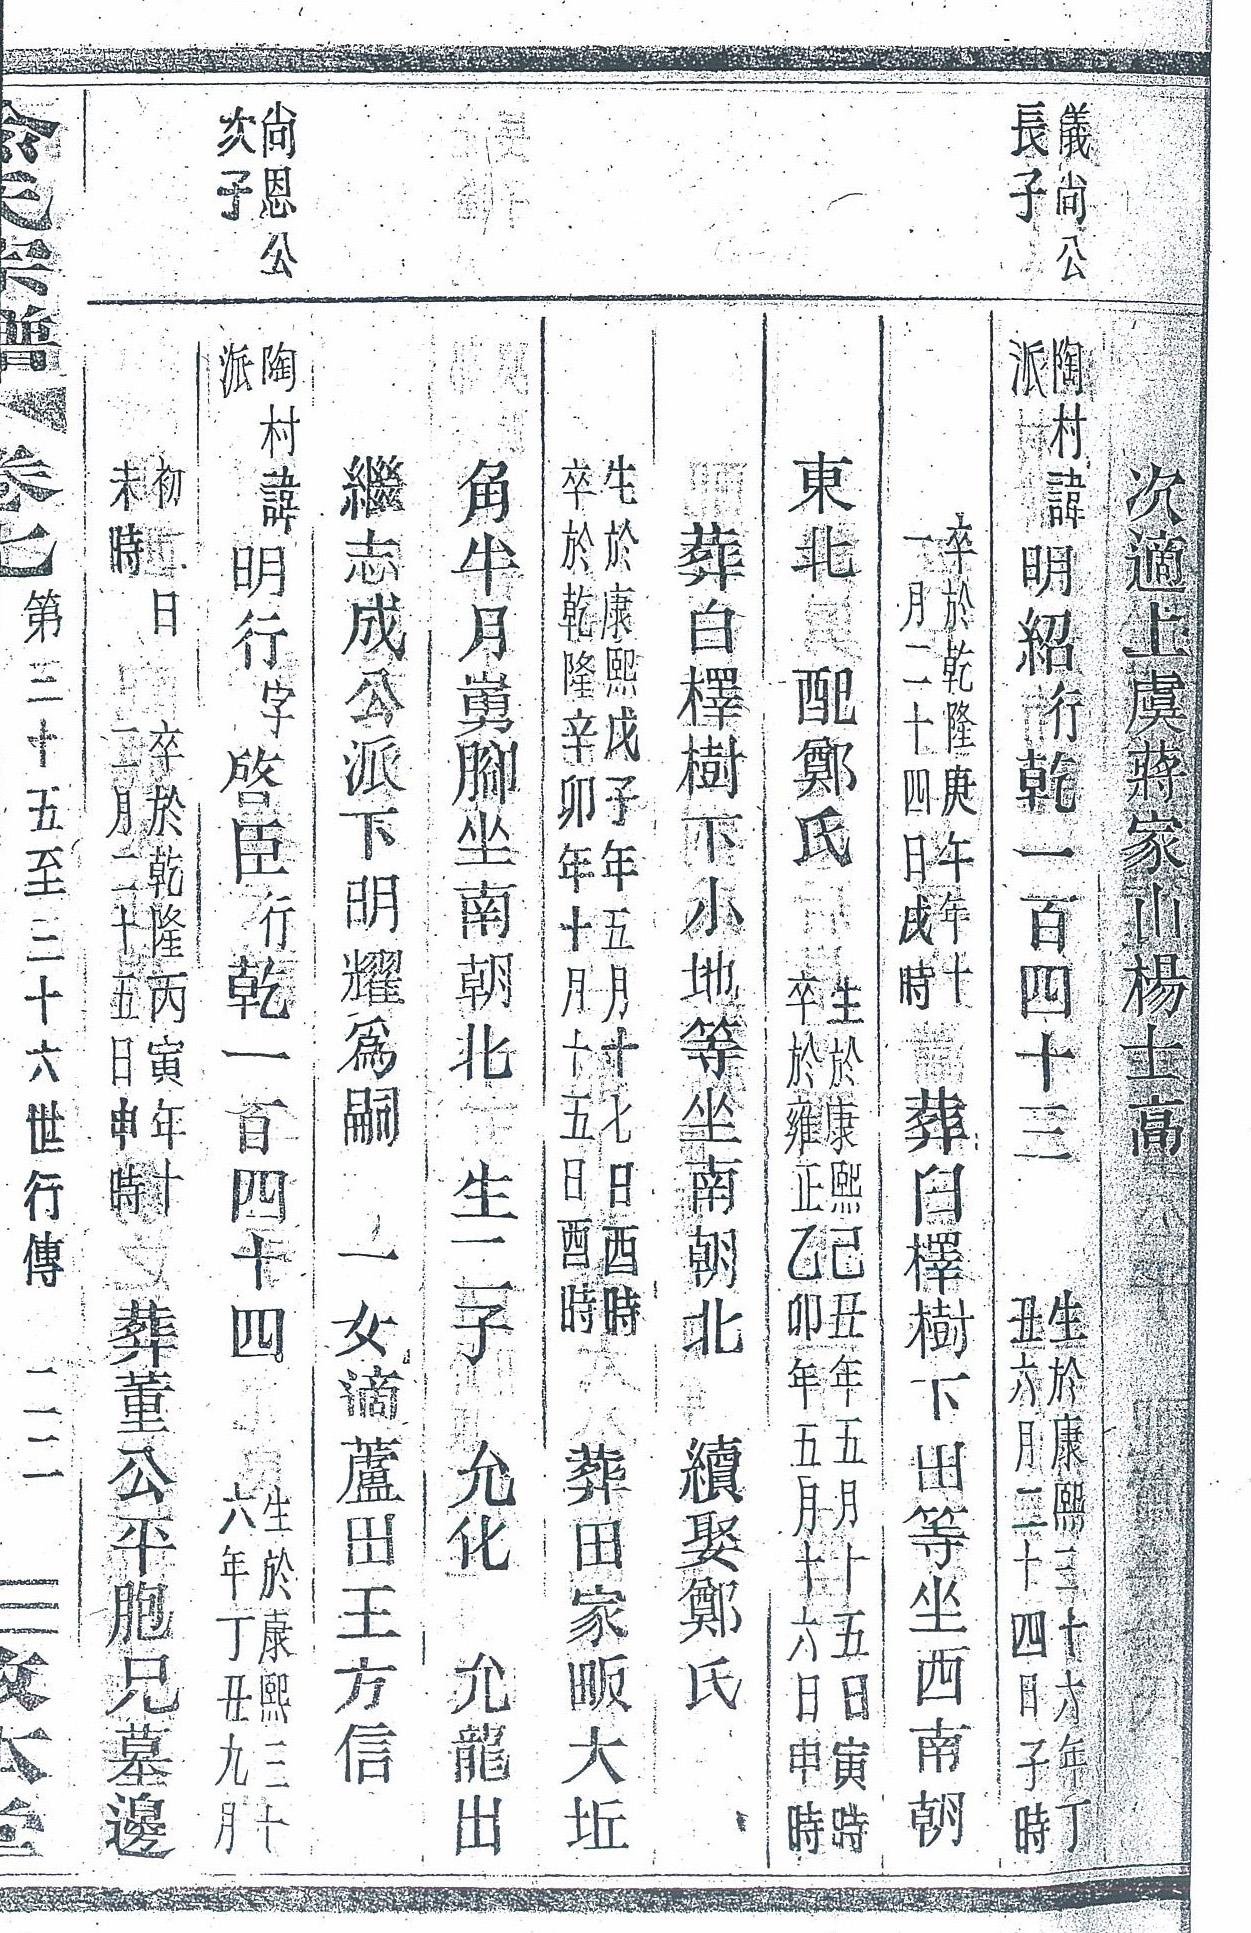 次適上虞蔣家山楊士高
儀尚公
長子
陶村諱
派
明紹行乾一百四十三
生於康熙三十六年丁
丑六月二十四日子時
卒於乾隆庚午年十
一月二十四日戌時
葬白檡樹下出等坐西南朝
東北
配鄭氏
生於康熙己丑年五月十五日寅時
卒於雍正乙卯年五月十六日申時
葬白檡樹下小地等坐南朝北
續娶鄭氏
生於康熙戊子年五月十七日酉時
卒於乾隆辛卯年十月十五日酉時
葬田家畈大坵
角牛月嵏腳坐南朝北
生二子
允化
允龍出
繼志成公派下明耀為嗣
一女適蘆田王方信
尚恩公
次子
陶村諱
派
明行字啓臣行乾一百四十四
生於康熙三十
六年丁丑九月
初二日
未時
卒於乾隆丙寅年十
二月二十五日申時
葬董公平胞兄墓邊
氏宗譜
卷七
第三十五至三十六世行傳
二二二